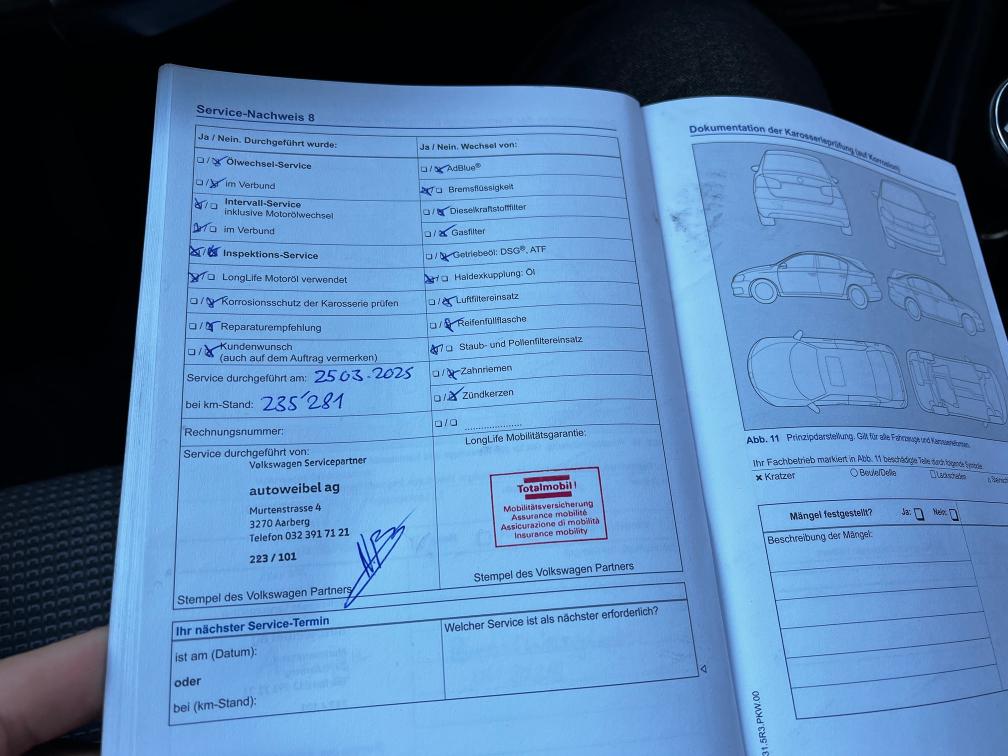 Service-Nachweis 8
Ja / Nein. Durchgeführt wurde:
❏ / ❏ Ölwechsel-Service
❏ / ❏ im Verbund
❏ / ❏ Intervall-Service
inklusive Motorölwechsel
❏ / ❏ im Verbund
❏ / ❏ Inspektions-Service
❏ / ❏ LongLife Motoröl verwendet
❏ / ❏ Korrosionsschutz der Karosserie prüfen
❏ / ❏ Reparaturempfehlung
❏ / ❏ Kundenwunsch
(auch auf dem Auftrag vermerken)
Service durchgeführt am: 25 03. 2025
bei km-Stand: 235'281
Rechnungsnummer:
Service durchgeführt von:
Volkswagen Servicepartner
autoweibel ag
Murtenstrasse 4
3270 Aarberg
Telefon 032 391 71 21
223 / 101
Stempel des Volkswagen Partners
Ja / Nein. Wechsel von:
❏ / ❏ AdBlue®
❏ / ❏ Bremsflüssigkeit
❏ / ❏ Dieselkraftstofffilter
❏ / ❏ Gasfilter
❏ / ❏ Getriebeöl: DSG®, ATF
❏ / ❏ Haldexkupplung: Öl
❏ / ❏ Luftfiltereinsatz
❏ / ❏ Reifenfüllflasche
❏ / ❏ Staub- und Pollenfiltereinsatz
❏ / ❏ Zahnriemen
❏ / ❏ Zündkerzen
❏ / ❏ ......................
LongLife Mobilitätsgarantie:
Totalmobil!
Mobilitätsversicherung
Assurance mobilité
Assicurazione di mobilità
Insurance mobility
Stempel des Volkswagen Partners
Ihr nächster Service-Termin
ist am (Datum):
oder
bei (km-Stand):
Welcher Service ist als nächster erforderlich?
Dokumentation der Karosserieprüfung (auf Korrosion)
Abb. 11 Prinzipdarstellung. Gilt für alle Fahrzeuge und Karosserieformen.
Ihr Fachbetrieb markiert in Abb. 11 beschädigte Teile durch folgende Symbole
× Kratzer ○ Beule/Delle □ Lackschaden
Mängel festgestellt? Ja: ❏ Nein: ❏
Beschreibung der Mängel:
31.5R3.PKW.00